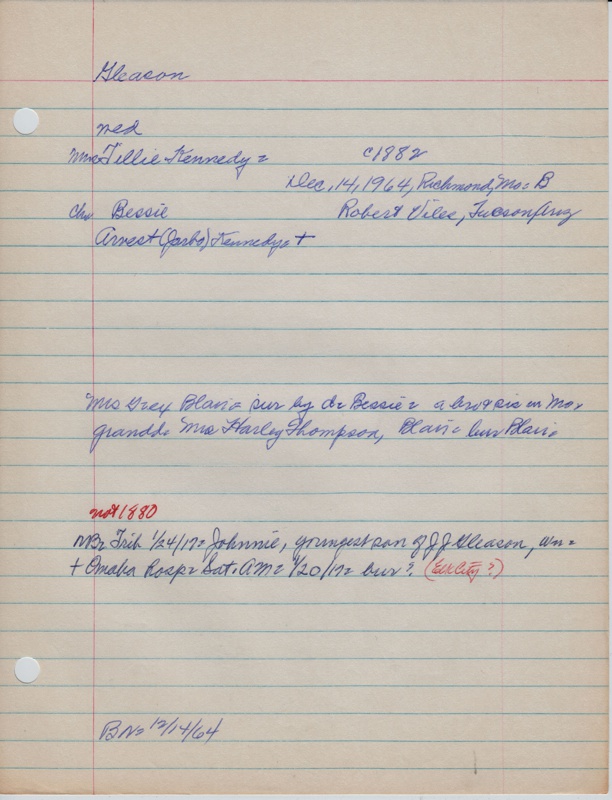 Gleason
wed
Mrs Tillie Kennedy = c1882
Dec, 14, 1964, Richmond, Mo = B
Ch= Bessie Robert Viles, Tucson Ariz
Arvest (Jarbo) Kennedy = +
Mrs Grex Blair = sur by d = Bessie = a bro & sis in Mo,
grandd = Mrs Harley Thompson, Blair = bur Blair =
not 1880
Trib 1/24/17 = Johnnie, youngest son of J J Gleason, wn =
+ Omaha Hosp = Sat, AM = 1/20/17 = bur? (Elk City?)
BN = 12/14/64